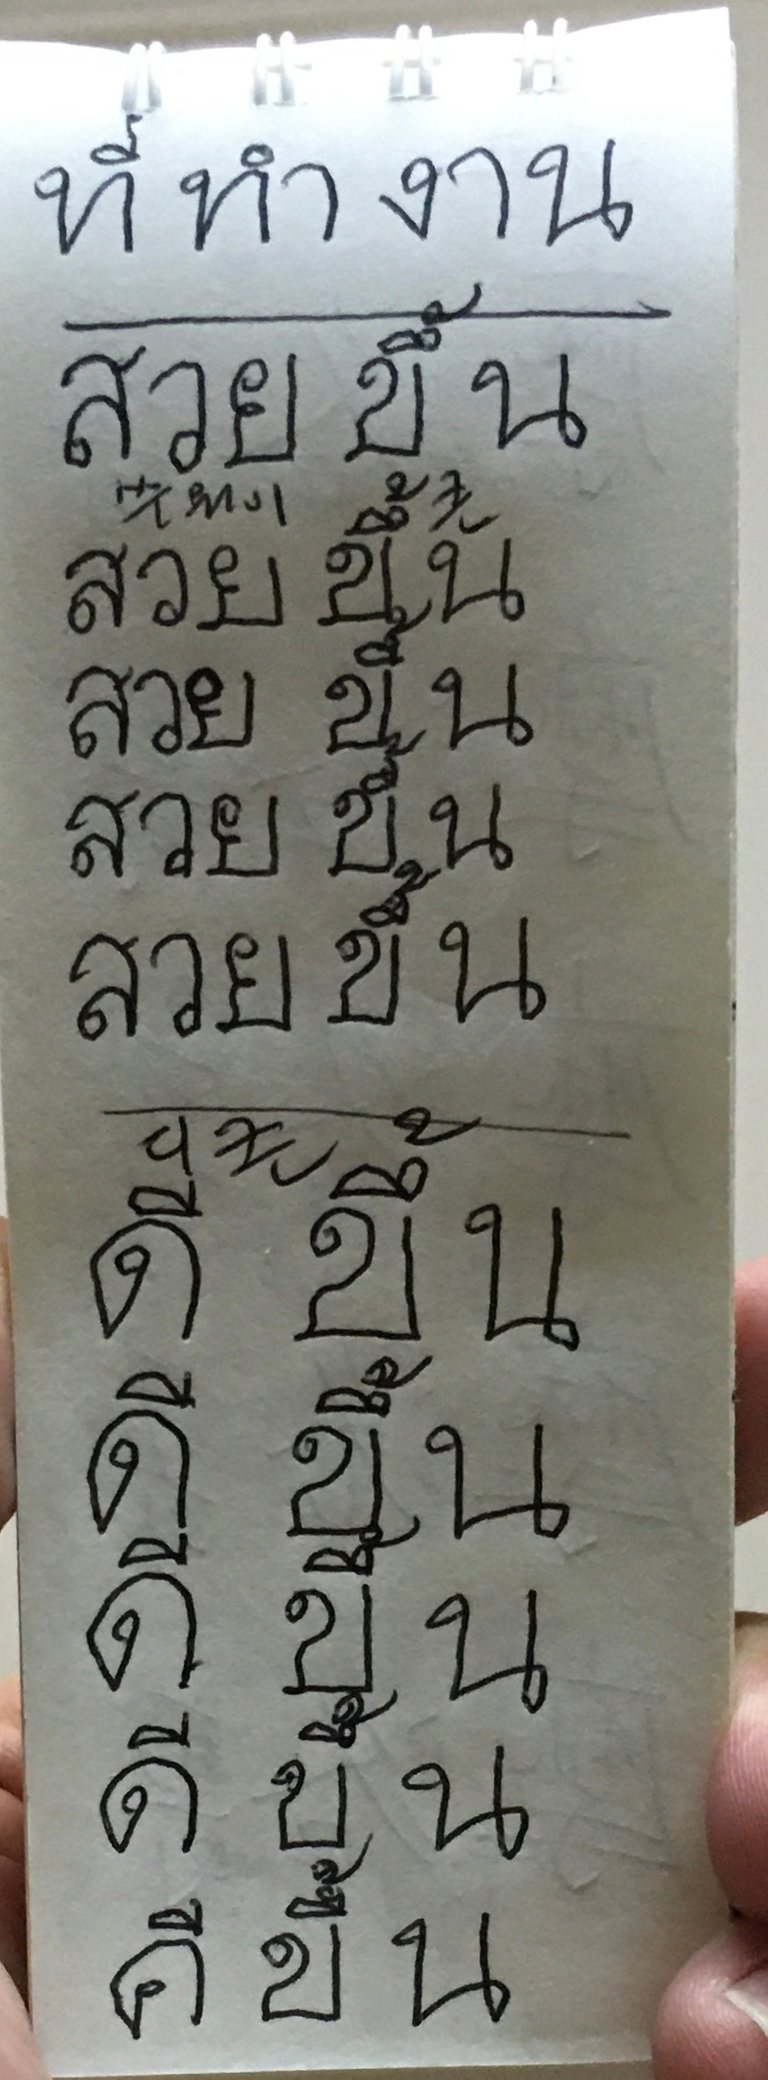 ที่ทำงาน
สวยขึ้น
สวยขึ้น
สวยขึ้น
สวยขึ้น
สวยขึ้น
ดีขึ้น
ดีขึ้น
ดีขึ้น
ดีขึ้น
คีขึ้น